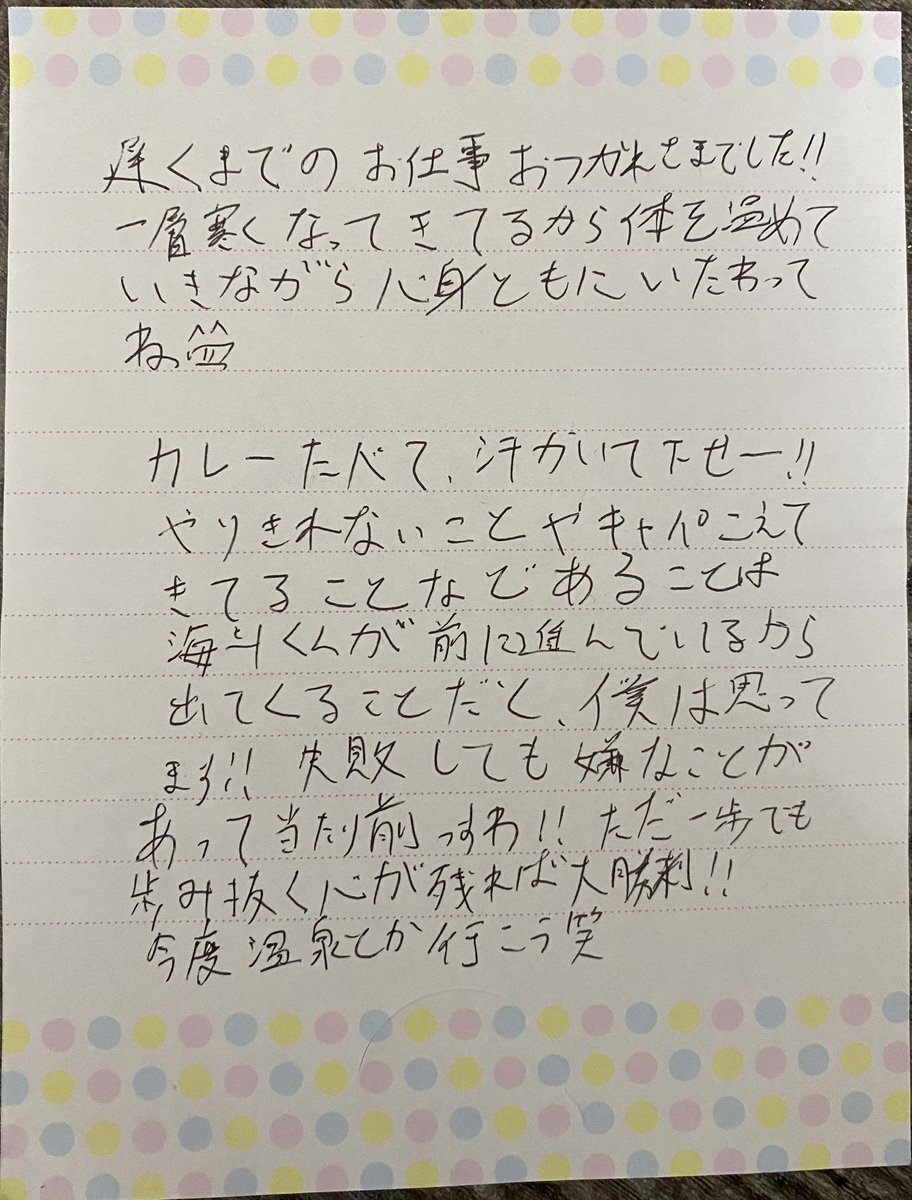 遅くまでのお仕事おつかれさまでした!!
一層寒くなってきてるから体を温めて
いきながら心身ともにいたわって
ね
カレーたべて、汗かいて下せー!!
やりきれないことやキャパこえて
きてることなどあることは
海斗くんが前に進んでいるから
出てくることだと、僕は思って
ます!! 失敗しても嫌なことが
あって当たり前っすわ!! ただ一歩でも
歩み抜く心が残れば大勝利!!
今度温泉とか行こう笑